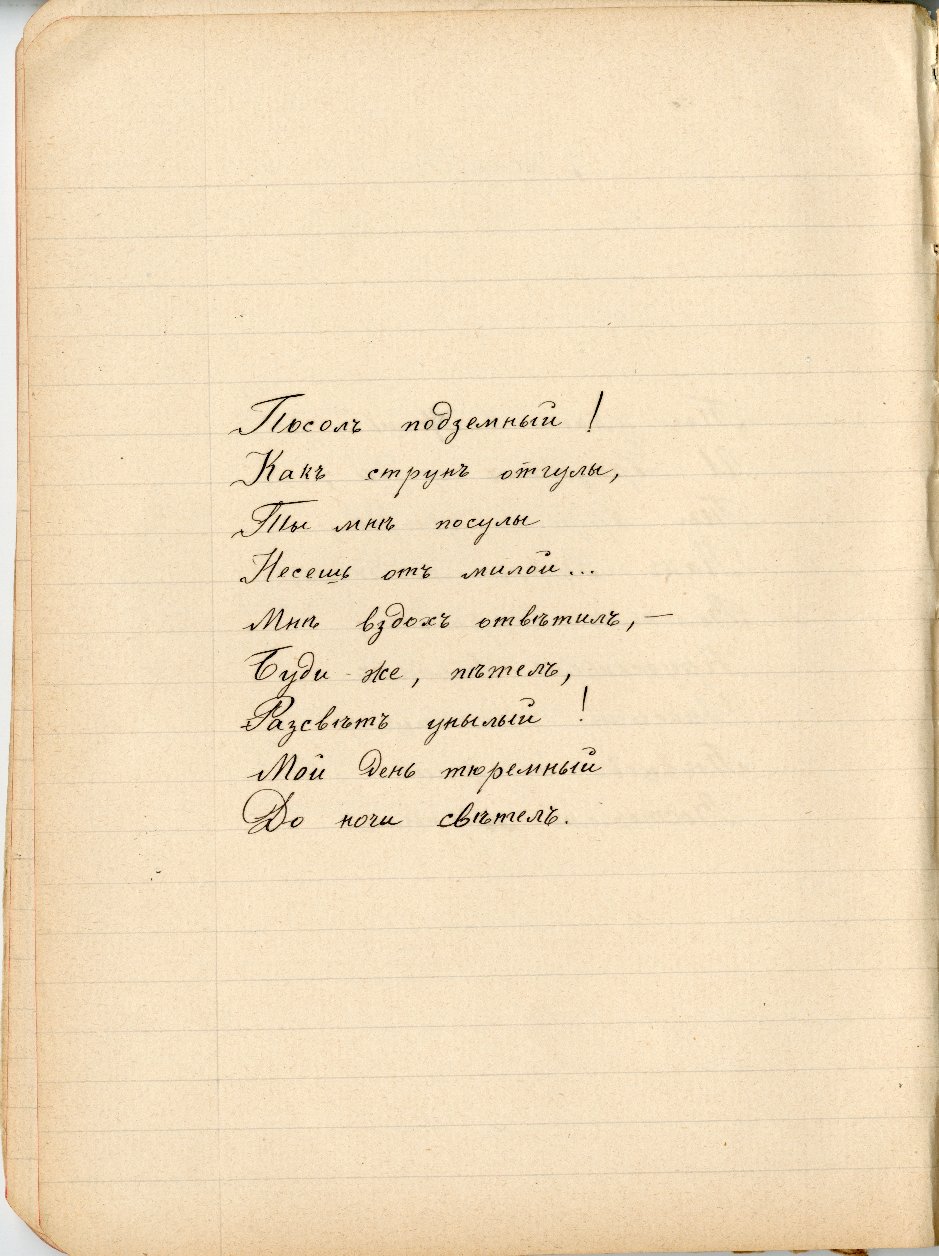 Посолъ подземный!
Какъ струнъ отгулы,
Ты мнѣ посулы
Несешь отъ милой...
Мнѣ вздохъ отвѣтилъ, —
Буди же, пѣтелъ,
Разсвѣтъ унылый!
Мой день тюремный
До ночи свѣтелъ.